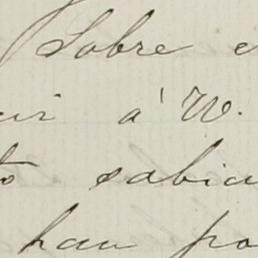 Sobre e
ir á W.
to sabia
han po